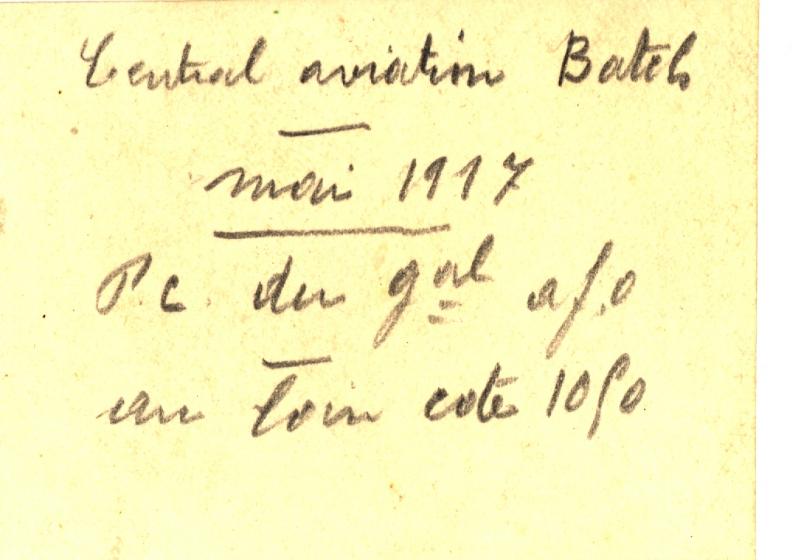 Central aviation Batch
mai 1917
P.C. du gal afo
au loin cote 1050